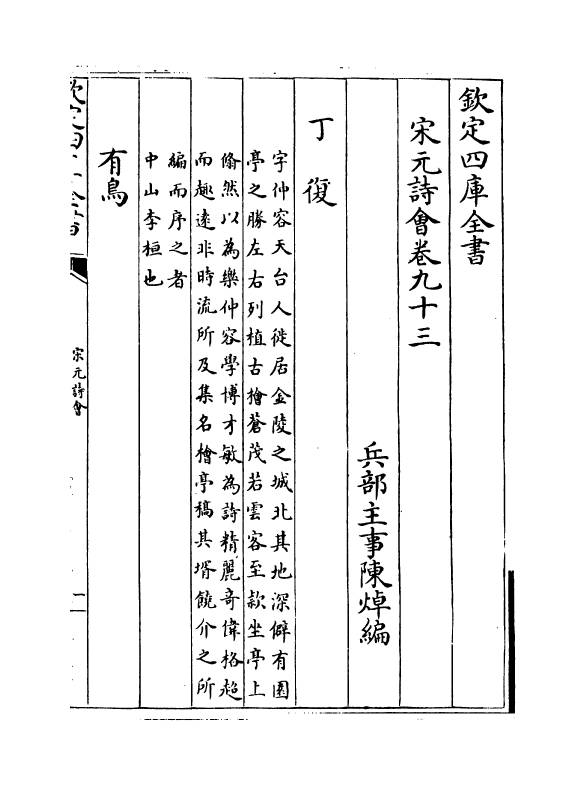 欽定四庫全書
宋元詩會卷九十三
兵部主事陳焯編
丁復
字仲容天台人徙居金陵之城北其地深僻有園
亭之勝左右列植古檜蒼茂若雲客至款坐亭上
翛然以為樂仲容學博才敏為詩精麗奇偉格超
而趣遠非時流所及集名檜亭稿其壻饒介之所
編而序之者
中山李桓也
有鳥
欽定四庫全書
宋元詩會
一